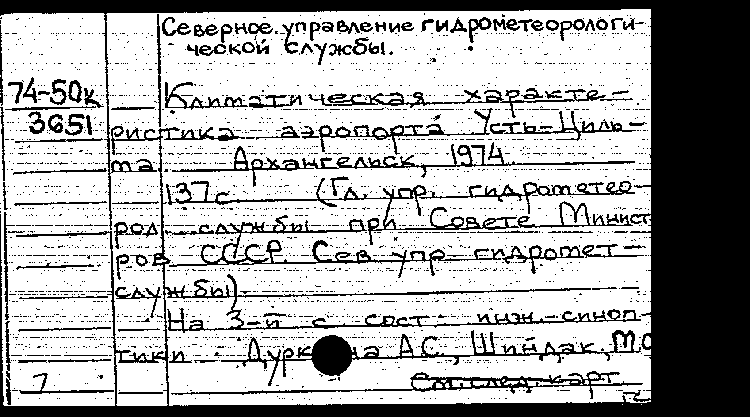 Северное управление гидрометеорологи-
ческой службы.
74-50к
3651
Климатическая характе-
ристика аэропорта Усть-Циль-
ма Архангельск, 1974
137с (Гл. упр. гидрометео-
рол службы при Совете Минист
ров СССР. Сев упр гидромет-
службы)
На 3-й с сост: инж.-синоп-
тики: А.С., Шиндак, М.О
См. след. карт
7